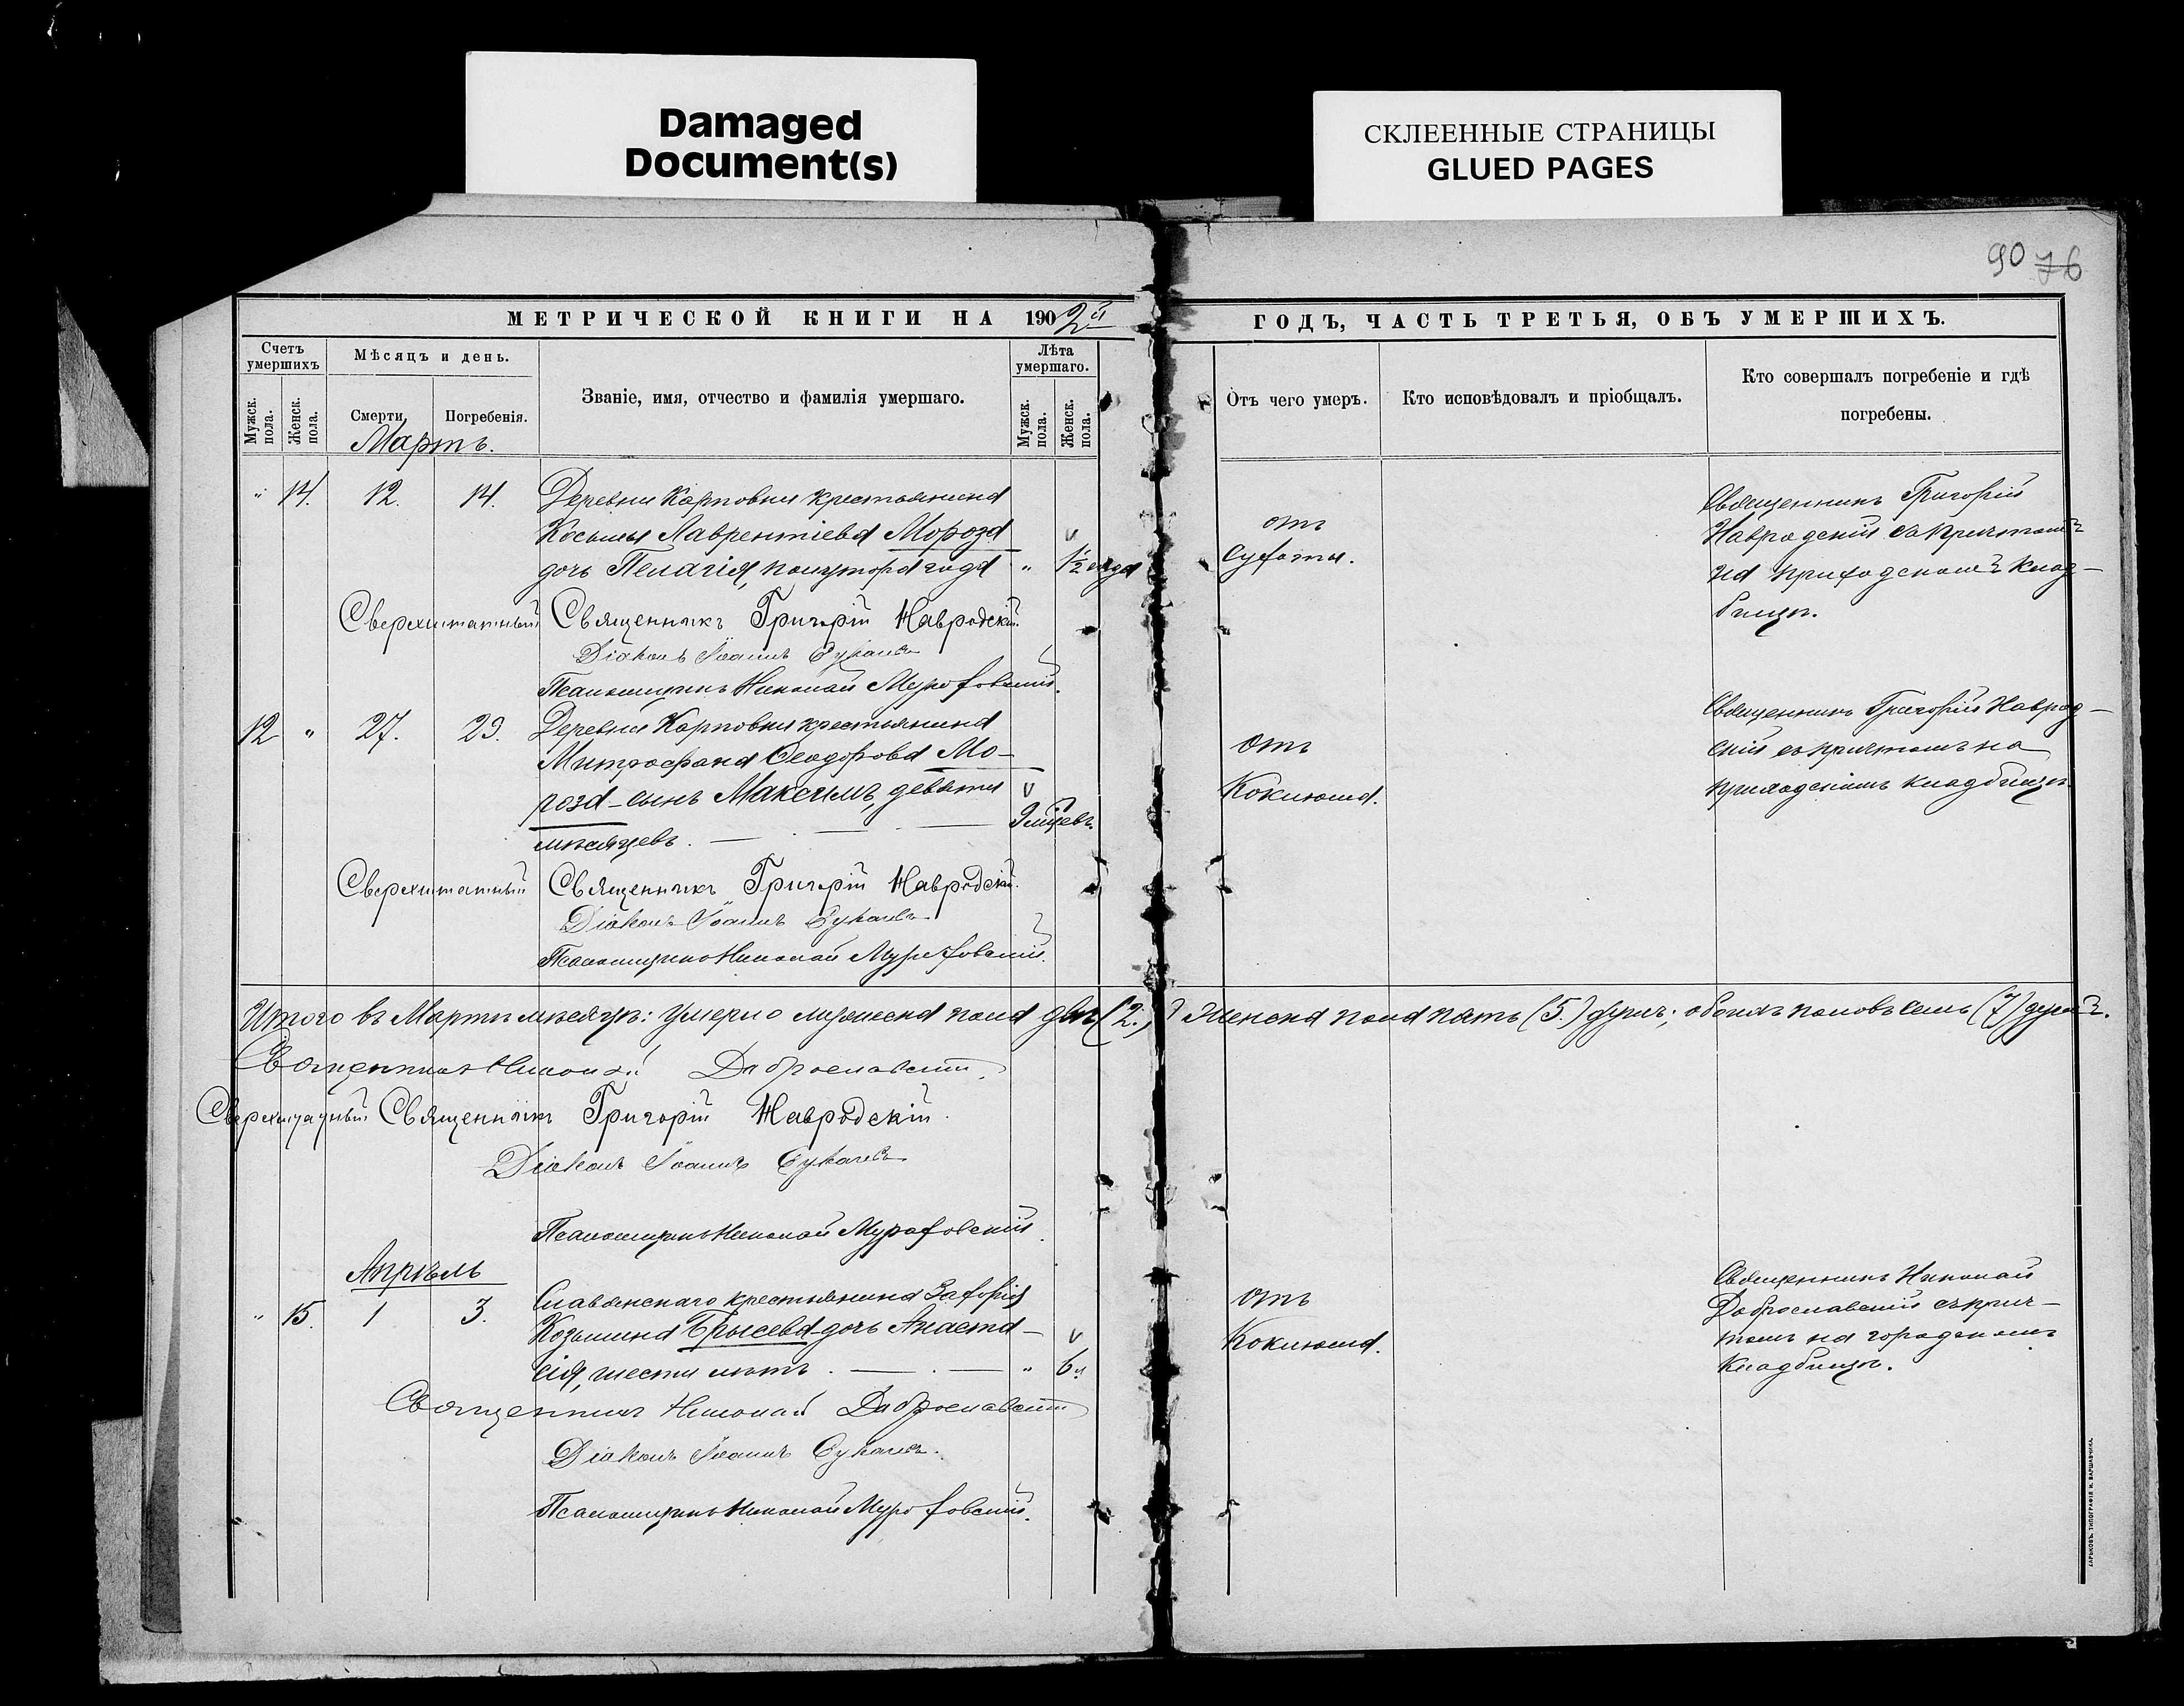 Damaged
Document(s)
СКЛЕЕННЫЕ СТРАНИЦЫ
GLUED PAGES
90 76
МЕТРИЧЕСКОЙ КНИГИ НА 1902й
ГОДЪ, ЧАСТЬ ТРЕТЬЯ, ОБЪ УМЕРШИХЪ.
Счетъ умершихъ
Мѣсяцъ и день.
Званіе, имя, отчество и фамилія умершаго.
Лѣта умершаго.
Мужск. пола.
Женск. пола.
Смерти,
Погребенія.
Мужск. пола.
Женск. пола.
Отъ чего умеръ.
Кто исповѣдовалъ и пріобщалъ.
Кто совершалъ погребеніе и гдѣ
погребены.
Мартъ.
" 14. 12. 14. Деревни Карповки крестьянина
Косьмы Лаврентіева Мороза
дочь Пелагія, полутора года " 1½ года
отъ
сухоты.
Священникъ Григорій
Навродскій съ причтомъ
на приходскомъ клад-
бищѣ.
Сверхштатный Священникъ Григорій Навродскій.
Діаконъ Іоаннъ
Псаломщикъ Николай Мураховскій.
12 " 27. 29. Деревни Карповки крестьянина
Митрофана Ѳеодорова Мо-
роза - сынъ Максимъ, девяти
мѣсяцевъ. 9 мѣсяцевъ.
отъ
Коклюша.
Священникъ Григорій Наврод-
скій съ причтомъ на
приходскомъ кладбищѣ.
Сверхштатный Священникъ Григорій Навродскій.
Діаконъ Іоаннъ
Псаломщикъ Николай Мураховскій.
Итого въ Мартѣ мѣсяцѣ: умерло мужеска пола двѣ (2.), женска пола пять (5.) душъ; обоихъ половъ семь (7) душъ.
Священникъ Николай Доброславскій.
Сверхштатный Священникъ Григорій Навродскій.
Діаконъ Іоаннъ
Псаломщикъ Николай Мураховскій.
Апрѣль
" 15. 1 3. Славянскаго крестьянина Захарія
Козьмина Брысева дочь Анаста-
сія, шести лѣтъ. " 6 л.
отъ
Коклюша.
Священникъ Николай
Доброславскій съ прич-
томъ на городскомъ
кладбищѣ.
Священникъ Николай Доброславскій
Діаконъ Іоаннъ
Псаломщикъ Николай Мураховскій.
ХАРЬКОВЪ. ТИПОГРАФІЯ И. ВАРШАВЧИКА.